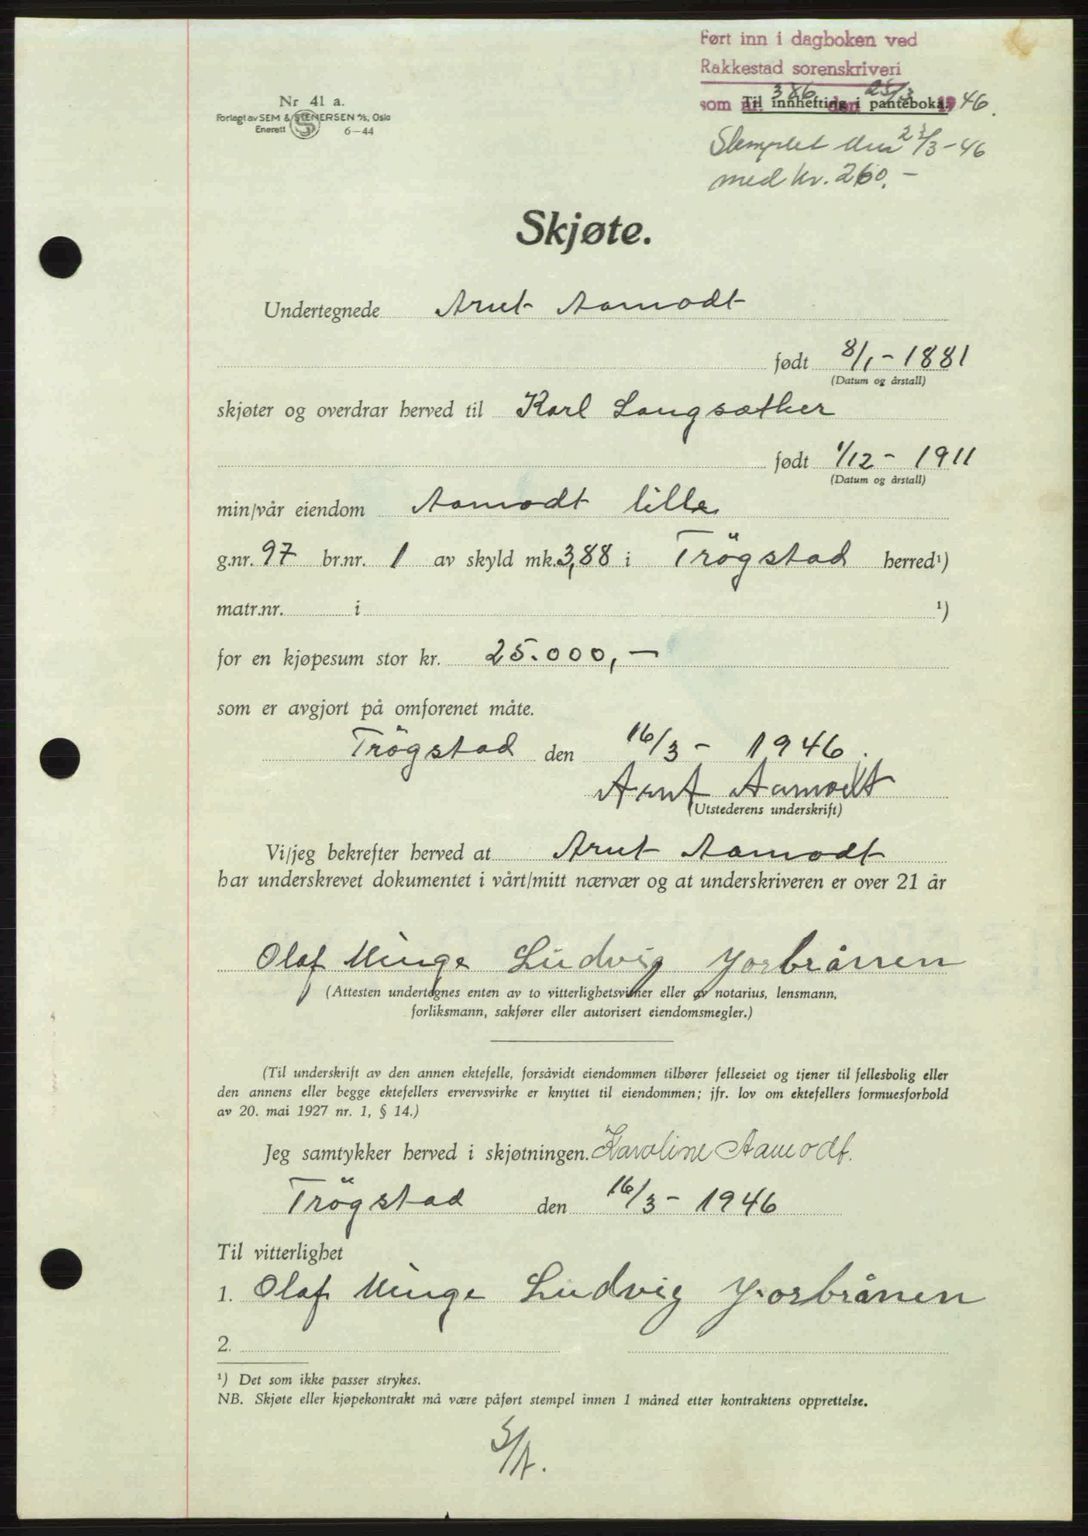 Ført inn i dagboken ved
Rakkestad sorenskriveri
som nr. 386 den 25/3 1946.
Til innhefting i panteboka.
Nr 41 a.
Forlagt av SEM & STENERSEN A/S, Oslo
Enerett 6-44
Stemplet den 25/3-46
med kr. 260.-
Skjøte.
Undertegnede Arnt Aamodt
født 8/1 - 1881
(Datum og årstall)
skjøter og overdrar herved til Karl Langsæther
født 1/12 - 1911
(Datum og årstall)
min/vår eiendom Aamodt lille
g.nr. 97 br.nr. 1 av skyld mk. 3,88 i Trögstad herred¹)
matr.nr. i ¹)
for en kjøpesum stor kr. 25.000,-
som er avgjort på omforenet måte.
Trögstad den 16/3 - 1946.
Arnt Aamodt
(Utstederens underskrift)
Vi/jeg bekrefter herved at Arnt Aamodt
har underskrevet dokumentet i vårt/mitt nærvær og at underskriveren er over 21 år
Olaf Minge Ludvig
(Attesten undertegnes enten av to vitterlighetsvidner eller av notarius, lensmann,
forliksmann, sakfører eller autorisert eiendomsmegler.)
(Til underskrift av den annen ektefelle, forsåvidt eiendommen tilhører felleseiet og tjener til fellesbolig eller
den annens eller begge ektefellers ervervsvirke er knyttet til eiendommen; jfr. lov om ektefellers formuesforhold
av 20. mai 1927 nr. 1, § 14.)
Jeg samtykker herved i skjøtningen. Karoline Aamodt.
Trögstad den 16/3 - 1946
Til vitterlighet
1. Olaf Minge Ludvig
2.
¹) Det som ikke passer strykes.
NB. Skjøte eller kjøpekontrakt må være påført stempel innen 1 måned etter kontraktens opprettelse.